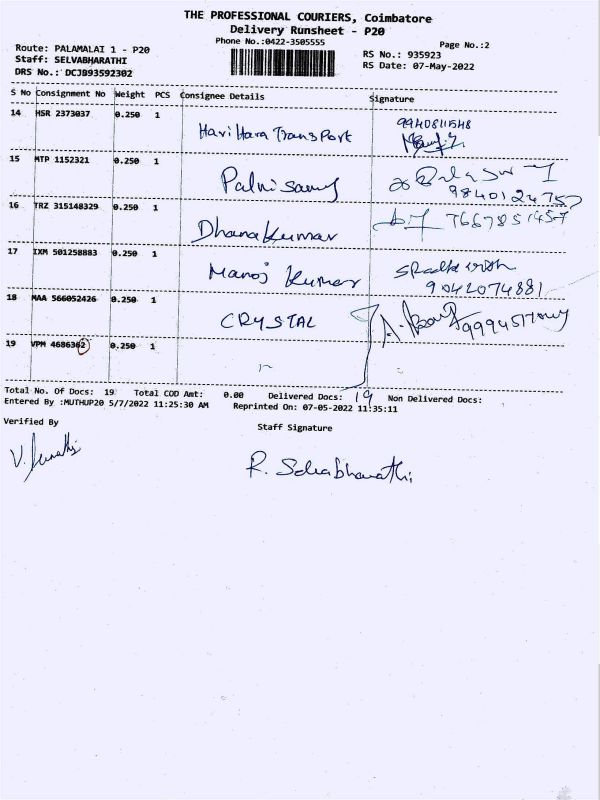 THE PROFESSIONAL COURIERS, Coimbatore
Delivery Runsheet - P20
Phone No.:0422-3505555
Page No.:2
Route: PALAMALAI 1 - P20
Staff: SELVABHARATHI
DRS No.: DCJB93592302
RS No.: 935923
RS Date: 07-May-2022
S No Consignment No Weight PCS Consignee Details Signature
14 HSR 2373037 0.250 1 Hari Hara Transport 9940811548
15 MTP 1152321 0.250 1 Palnisamy
16 TRZ 315148329 0.250 1 Dhana Kumar
17 IXM 501258883 0.250 1 Manoj Kumar 9042074881
18 MAA 566052426 0.250 1 CRYSTAL
19 VPM 4686302 0.250 1
Total No. Of Docs: 19 Total COD Amt: 0.00 Delivered Docs: 19 Non Delivered Docs:
Entered By :MUTHUP20 5/7/2022 11:25:30 AM Reprinted On: 07-05-2022 11:35:11
Verified By
Staff Signature
R. Selvabharathi